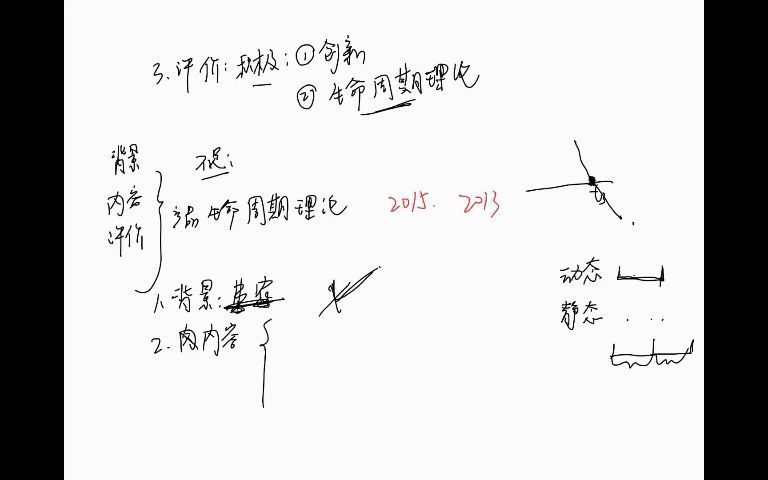 3. 评价: 积极: ① 创新
② 生命周期理论
背景
内容
评价
不足:
产品生命周期理论 2015. 2013
1. 背景:
2. 内容
动态
静态 . ...
t₀